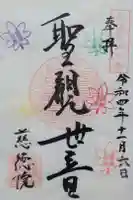 奉拝
令和四年十一月六日
聖観世音
慈徳院